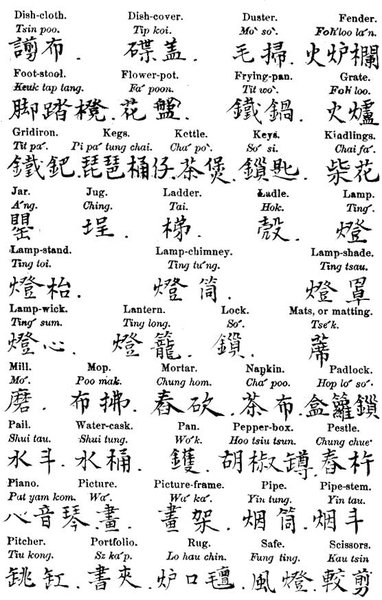 Dish-cloth. Dish-cover. Duster. Fender.
Tsin poo. Tip koi. Mo' so'. Foh' loo la'n.
布. 碟蓋. 毛掃. 火炉欄
Foot-stool. Flower-pot. Frying-pan. Grate.
Keuk tap tang. Fa' poon. Tit wo'. Foh' loo.
脚踏櫈. 花盤. 鐵鍋. 火爐
Gridiron. Kegs. Kettle. Keys. Kindlings.
Tit pa'. Pi pa' tung chai. Cha' po'. So' si. Chai fa'.
鐵鈀. 琵琶桶仔. 茶煲. 鎖匙. 柴花
Jar. Jug. Ladder. Ladle. Lamp.
A'ng. Ching. Tai. Hok. Ting'.
罌. 埕. 梯. 殼. 燈
Lamp-stand. Lamp-chimney. Lamp-shade.
Ting toi. Ting tu'ng. Ting tsau.
燈枱. 燈筒. 燈罩
Lamp-wick. Lantern. Lock. Mats, or matting.
Ting' sum. Ting long. So'. Tse'k.
燈心. 燈籠. 鎖. 蓆
Mill. Mop. Mortar. Napkin. Padlock.
Mo'. Poo mak. Chung hom. Cha' poo. Hop lo' so'.
磨. 布拂. 舂砍. 茶布. 盒籮鎖
Pail. Water-cask. Pan. Pepper-box. Pestle.
Shui tau. Shui tung. Wo'k. Hoo tsiu tsun. Chung chue'
水斗. 水桶. 鑊. 胡椒罇. 舂杵
Piano. Picture. Picture-frame. Pipe. Pipe-stem.
Pat yam kom. Wa'. Wa' ka'. Yin tung. Yin tau.
八音琴. 畫. 畫架. 烟筒. 烟斗
Pitcher. Portfolio. Rug. Safe. Scissors.
Tiu kong. Sz ka'p. Lo hau chin. Fung ting. Kau tsin
缸. 書夾. 炉口氊. 風燈. 較剪